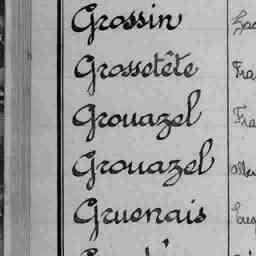 Grossin
Grossetête
Grouazel
Grouazel
Gruenais